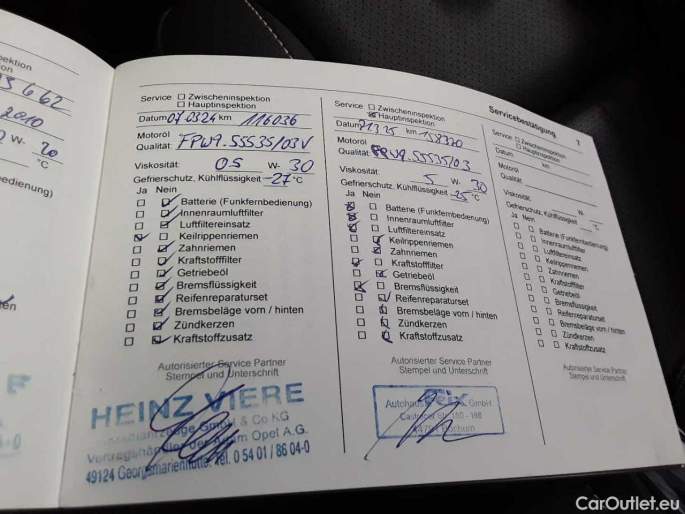 Service Zwischeninspektion
Hauptinspektion
Datum 07.03.24 km 116036
Motoröl
Qualität: FPW9.55535/03V
Viskosität: 05 W- 30
Gefrierschutz, Kühlflüssigkeit -27 °C
Ja Nein
Batterie (Funkfernbedienung)
Innenraumluftfilter
Luftfiltereinsatz
Keilrippenriemen
Zahnriemen
Kraftstofffilter
Getriebeöl
Bremsflüssigkeit
Reifenreparaturset
Bremsbeläge vorn / hinten
Zündkerzen
Kraftstoffzusatz
Autorisierter Service Partner
Stempel und Unterschrift
HEINZ VIERE
GmbH & Co KG
Vertragshändler der Adam Opel A.G.
49124 Georgsmarienhütte. Tel. 0 54 01 / 86 04-0
Service Zwischeninspektion
Hauptinspektion
Datum 21.3.25 km 158320
Motoröl
Qualität: FPW9.55535/03
Viskosität: 5 W- 30
Gefrierschutz, Kühlflüssigkeit -25 °C
Ja Nein
Batterie (Funkfernbedienung)
Innenraumluftfilter
Luftfiltereinsatz
Keilrippenriemen
Zahnriemen
Kraftstofffilter
Getriebeöl
Bremsflüssigkeit
Reifenreparaturset
Bremsbeläge vorn / hinten
Zündkerzen
Kraftstoffzusatz
Autorisierter Service Partner
Stempel und Unterschrift
Autohaus Feix GmbH
Bochum
Servicebestätigung 7
Service Zwischeninspektion
Hauptinspektion
Datum km
Motoröl
Qualität:
Viskosität: W-
Gefrierschutz, Kühlflüssigkeit °C
Ja Nein
Batterie (Funkfernbedienung)
Innenraumluftfilter
Luftfiltereinsatz
Keilrippenriemen
Zahnriemen
Kraftstofffilter
Getriebeöl
Bremsflüssigkeit
Reifenreparaturset
Bremsbeläge vorn / hinten
Zündkerzen
Kraftstoffzusatz
Autorisierter Service Partner
Stempel und Unterschrift
CarOutlet.eu